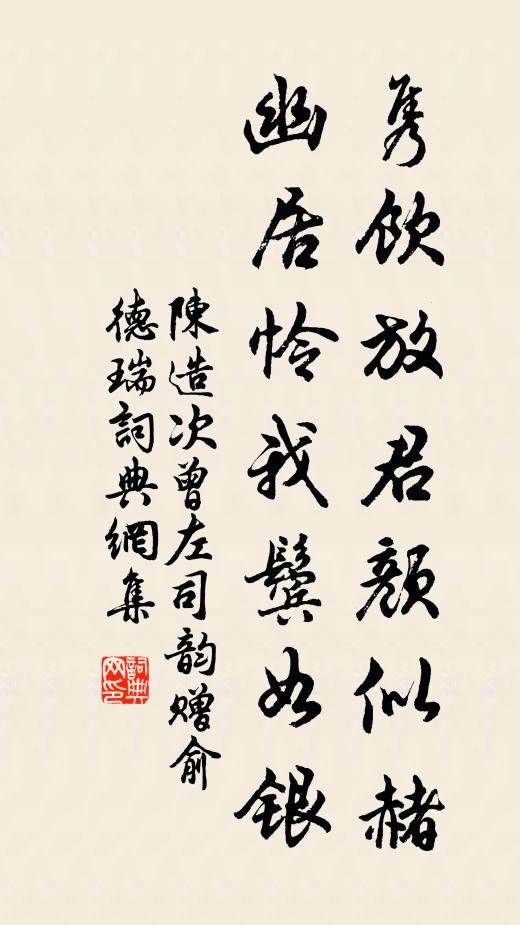 隽飲放君顏似赭
幽居怜我鬓如銀
陳造次曾左司韵贈俞
德瑞詞典網集
詞典网印